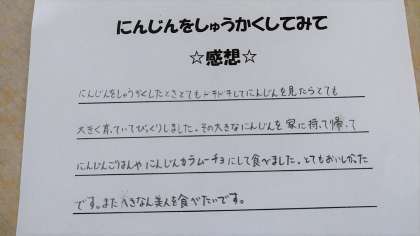 にんじんをしゅうかくしてみて
☆感想☆
にんじんをしゅうかくしたときとてもドキドキしてにんじんを見たらとても
大きく育っていてびっくりしました。その大きなにんじんを家に持って帰って
にんじんごはんやにんじんカラムーチョにして食べました。とてもおいしかった
です。また大きなん美人を食べたいです。